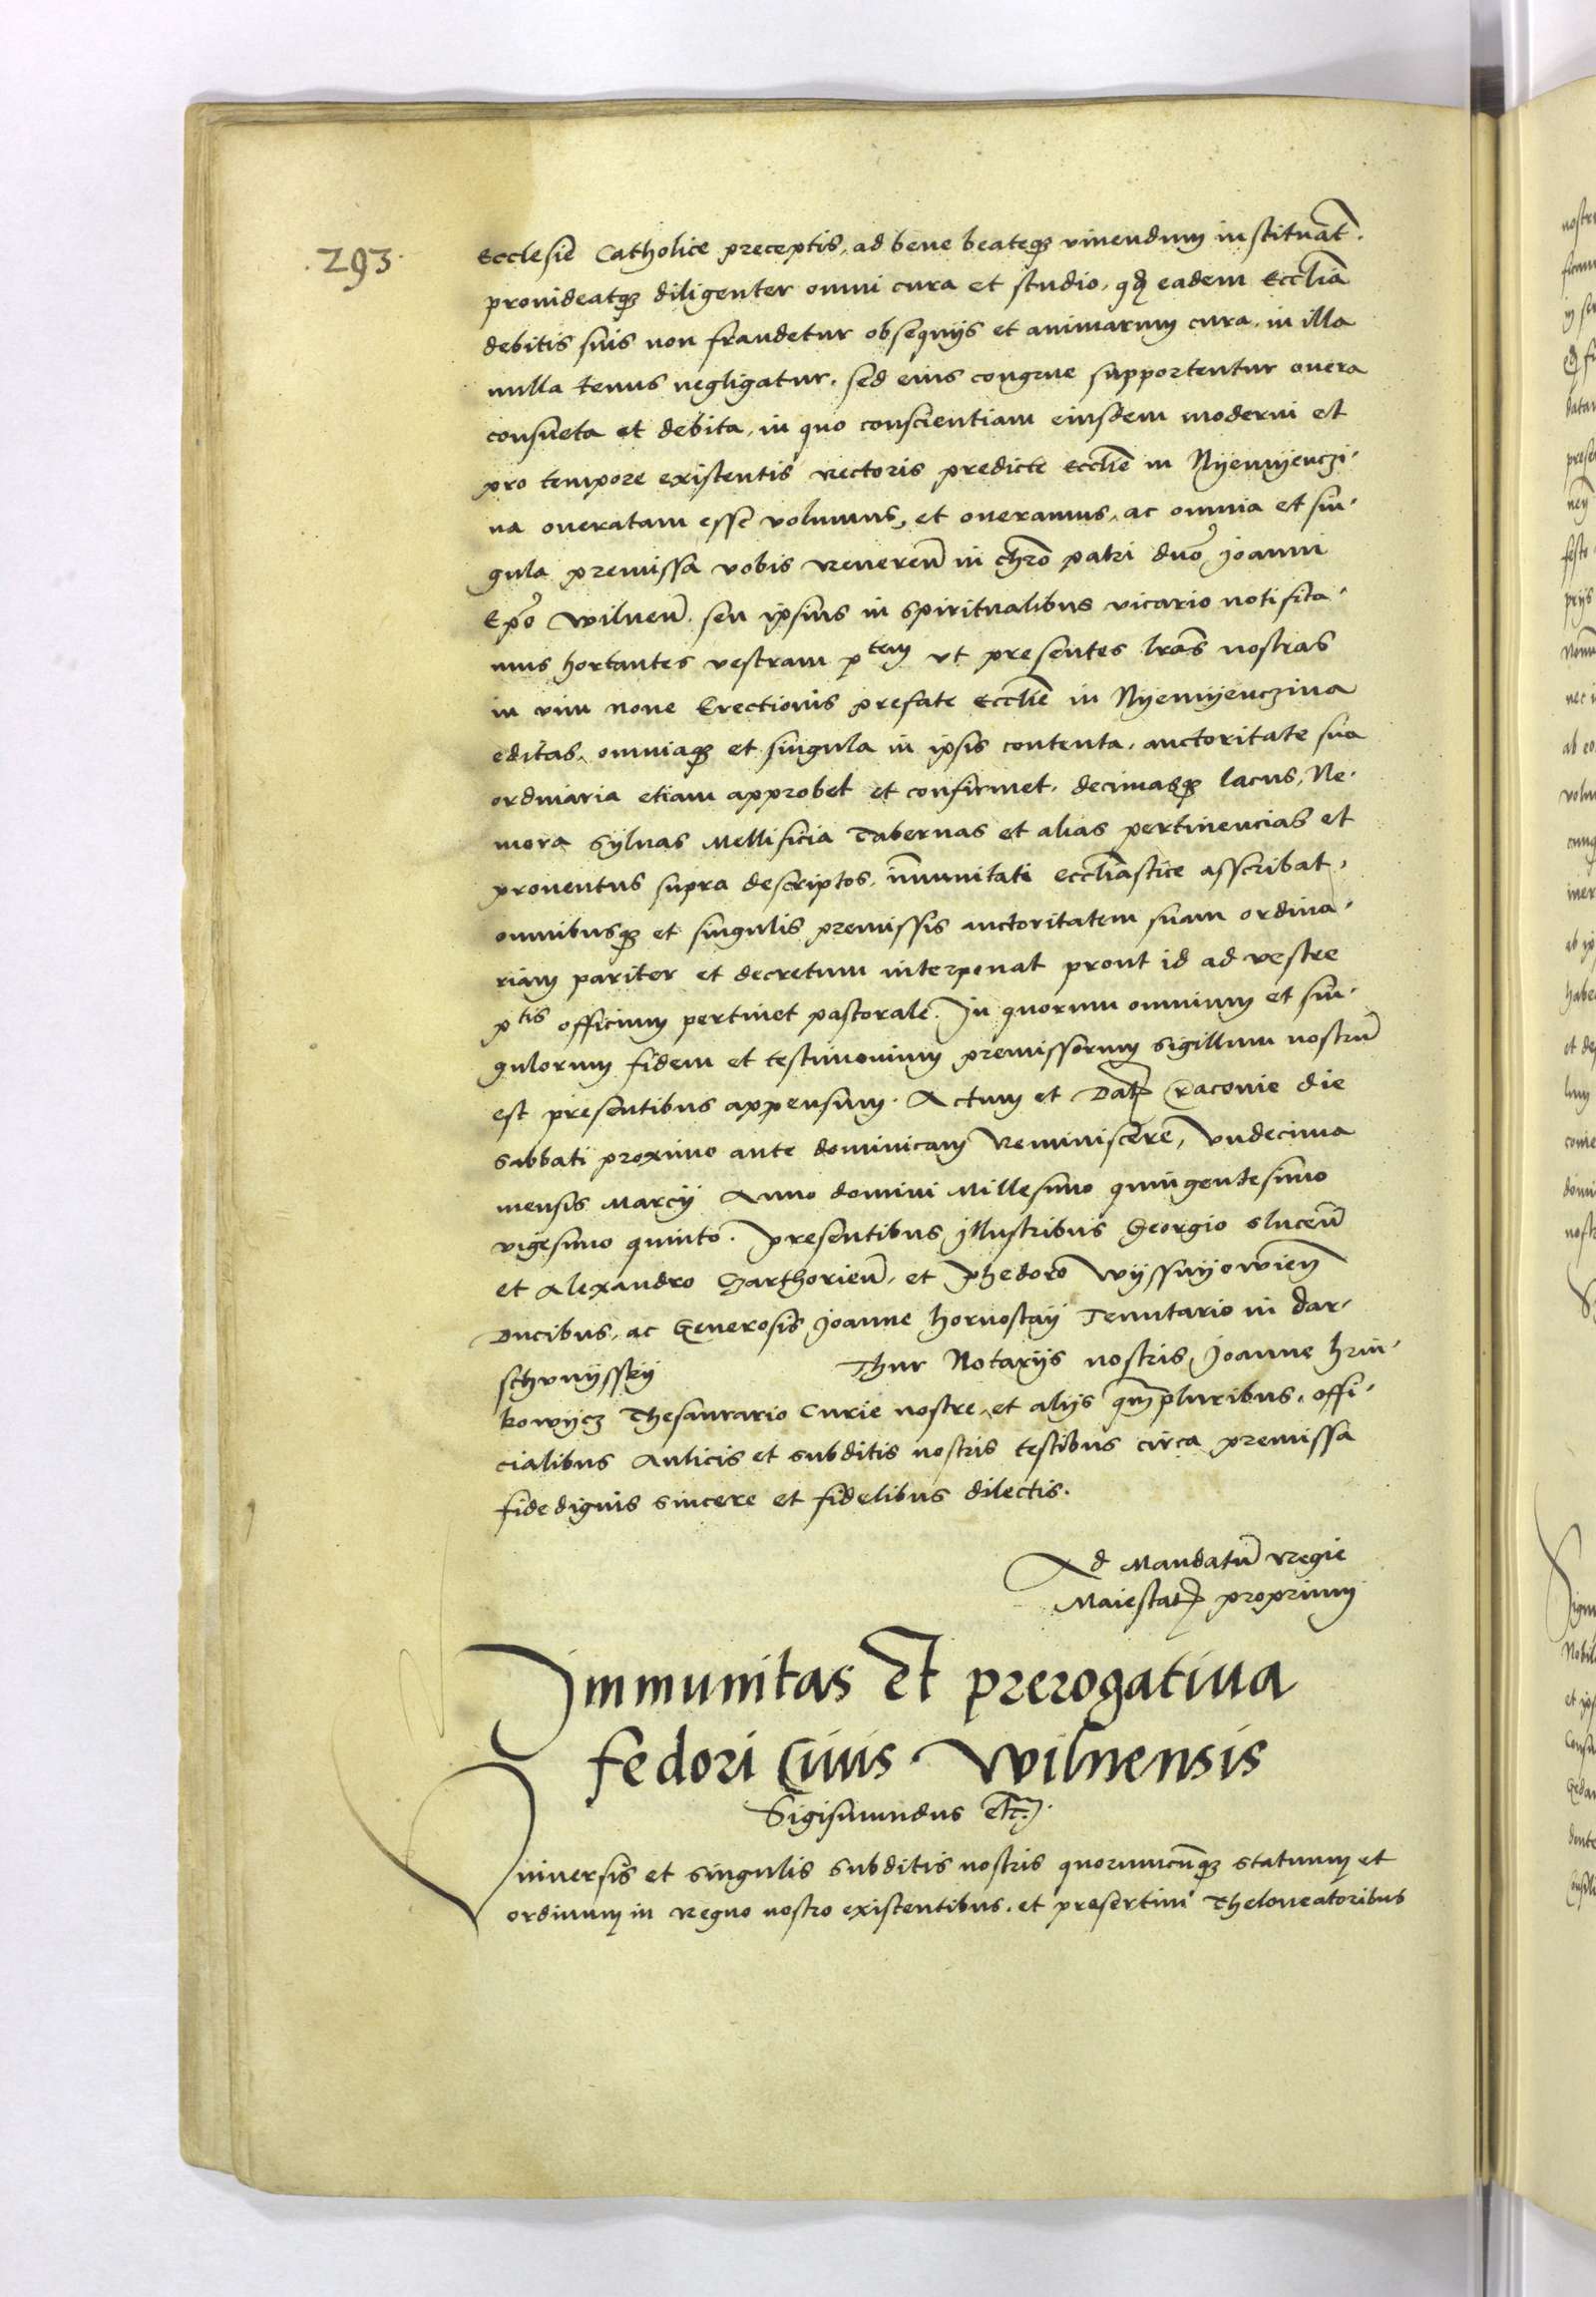 .293.
Ecclesie Catholice preceptis, ad bene beateqȝ viuendum instituat̃.
prouideatqȝ diligenter omni cura et studio, qđ eadem Eccl̃ia
debitis suis non fraudetur obsequijs et animarum cura, in illa
nulla tenus negligatur. sed eius congrue supportentur onera
consueta et debita, in quo conscientiam eiusdem moderni et
pro tempore existentis rectoris predicte eccl̃ie in Nyemyenczi-
na oneratam esse volumus, et oneramus, ac omnia et sin-
gula premissa vobis Reuereñ in chr̃o patri dño Joanni
Ep̃o Wilneñ. seu ipsius in spiritualibus vicario notifica-
mus hortantes vestram ptem vt presentes lr̃as nostras
in vim noue Erectionis prefate eccl̃ie in Nyemyenczina
editas, omniaqȝ et singula in ipsis contenta, auctoritate sua
ordinaria etiam approbet et confirmet, decimasqȝ lacus, Ne-
mora Syluas Mellificia Tabernas et alias pertinencias et
prouentus supra descriptos, im̃unitati eccl̃iastice asscribat,
omnibusqȝ et singulis premissis auctoritatem suam ordina-
riam pariter et decretum interponat prout id ad vestre
ptis officium pertinet pastorale. In quorum omnium et sin-
gulorum fidem et testimonium premissorum Sigillum nostrũ
est presentibus appensum. Actum et Dat̃ Cracouie die
Sabbati proximo ante dominicam Reminiscere, vndecima
mensis Marcij Anno domini Millesimo quingentesimo
vigesimo quinto. Presentibus Illustribus Georgio Sluceñ
et Alexandro Czarthorieñ, et Phedoro Wyssnyowieñ
Ducibus, ac Generosis Joanne Hornostay Tenutario in Dar-
schvnysski Thur Notarijs nostris Joanne Hrin-
kowycz Thesaurario Curie nostre, et alijs qm̃pluribus, offi-
cialibus Aulicis et subditis nostris testibus circa premissa
fide dignis sincere et fidelibus dilectis.
Ad Mandatũ Regie
Maiestat̃ proprium
Immunitas Et prerogatiua
Fedori Ciuis Wilnensis
Sigismundus etc̃.
Vniuersis et singulis subditis nostris quorumcũqȝ statuum et
ordinum in Regno nostro existentibus, et presertim Theloneatoribus